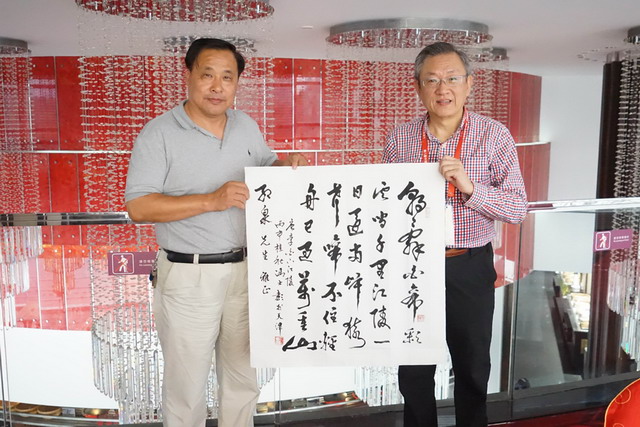 朝辞白帝彩
云间千里江陵一
日还两岸猿
声啼不住轻
舟已过万重山
唐李白江陵
先生雅正